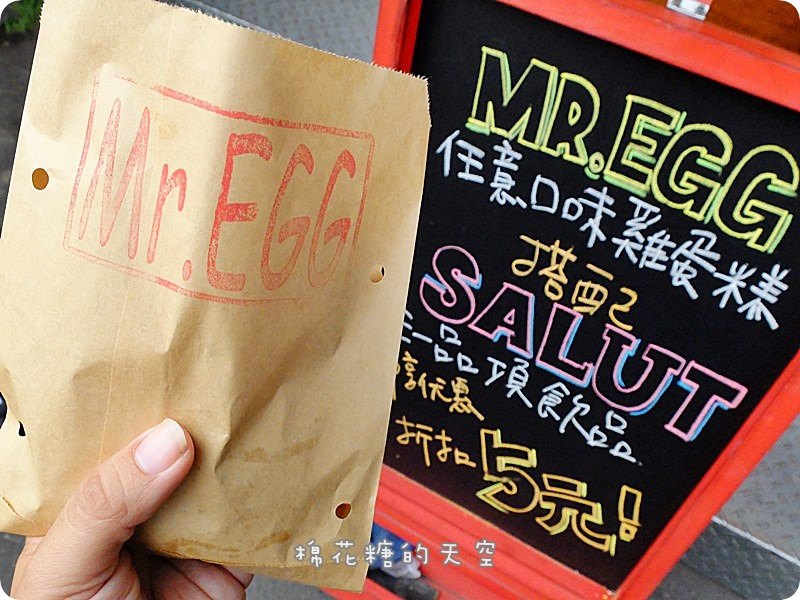 Mr.EGG
MR.EGG
任意口味雞蛋糕
搭配
SALUT
品項飲品
享優惠
折扣5元!
棉花糖的天空